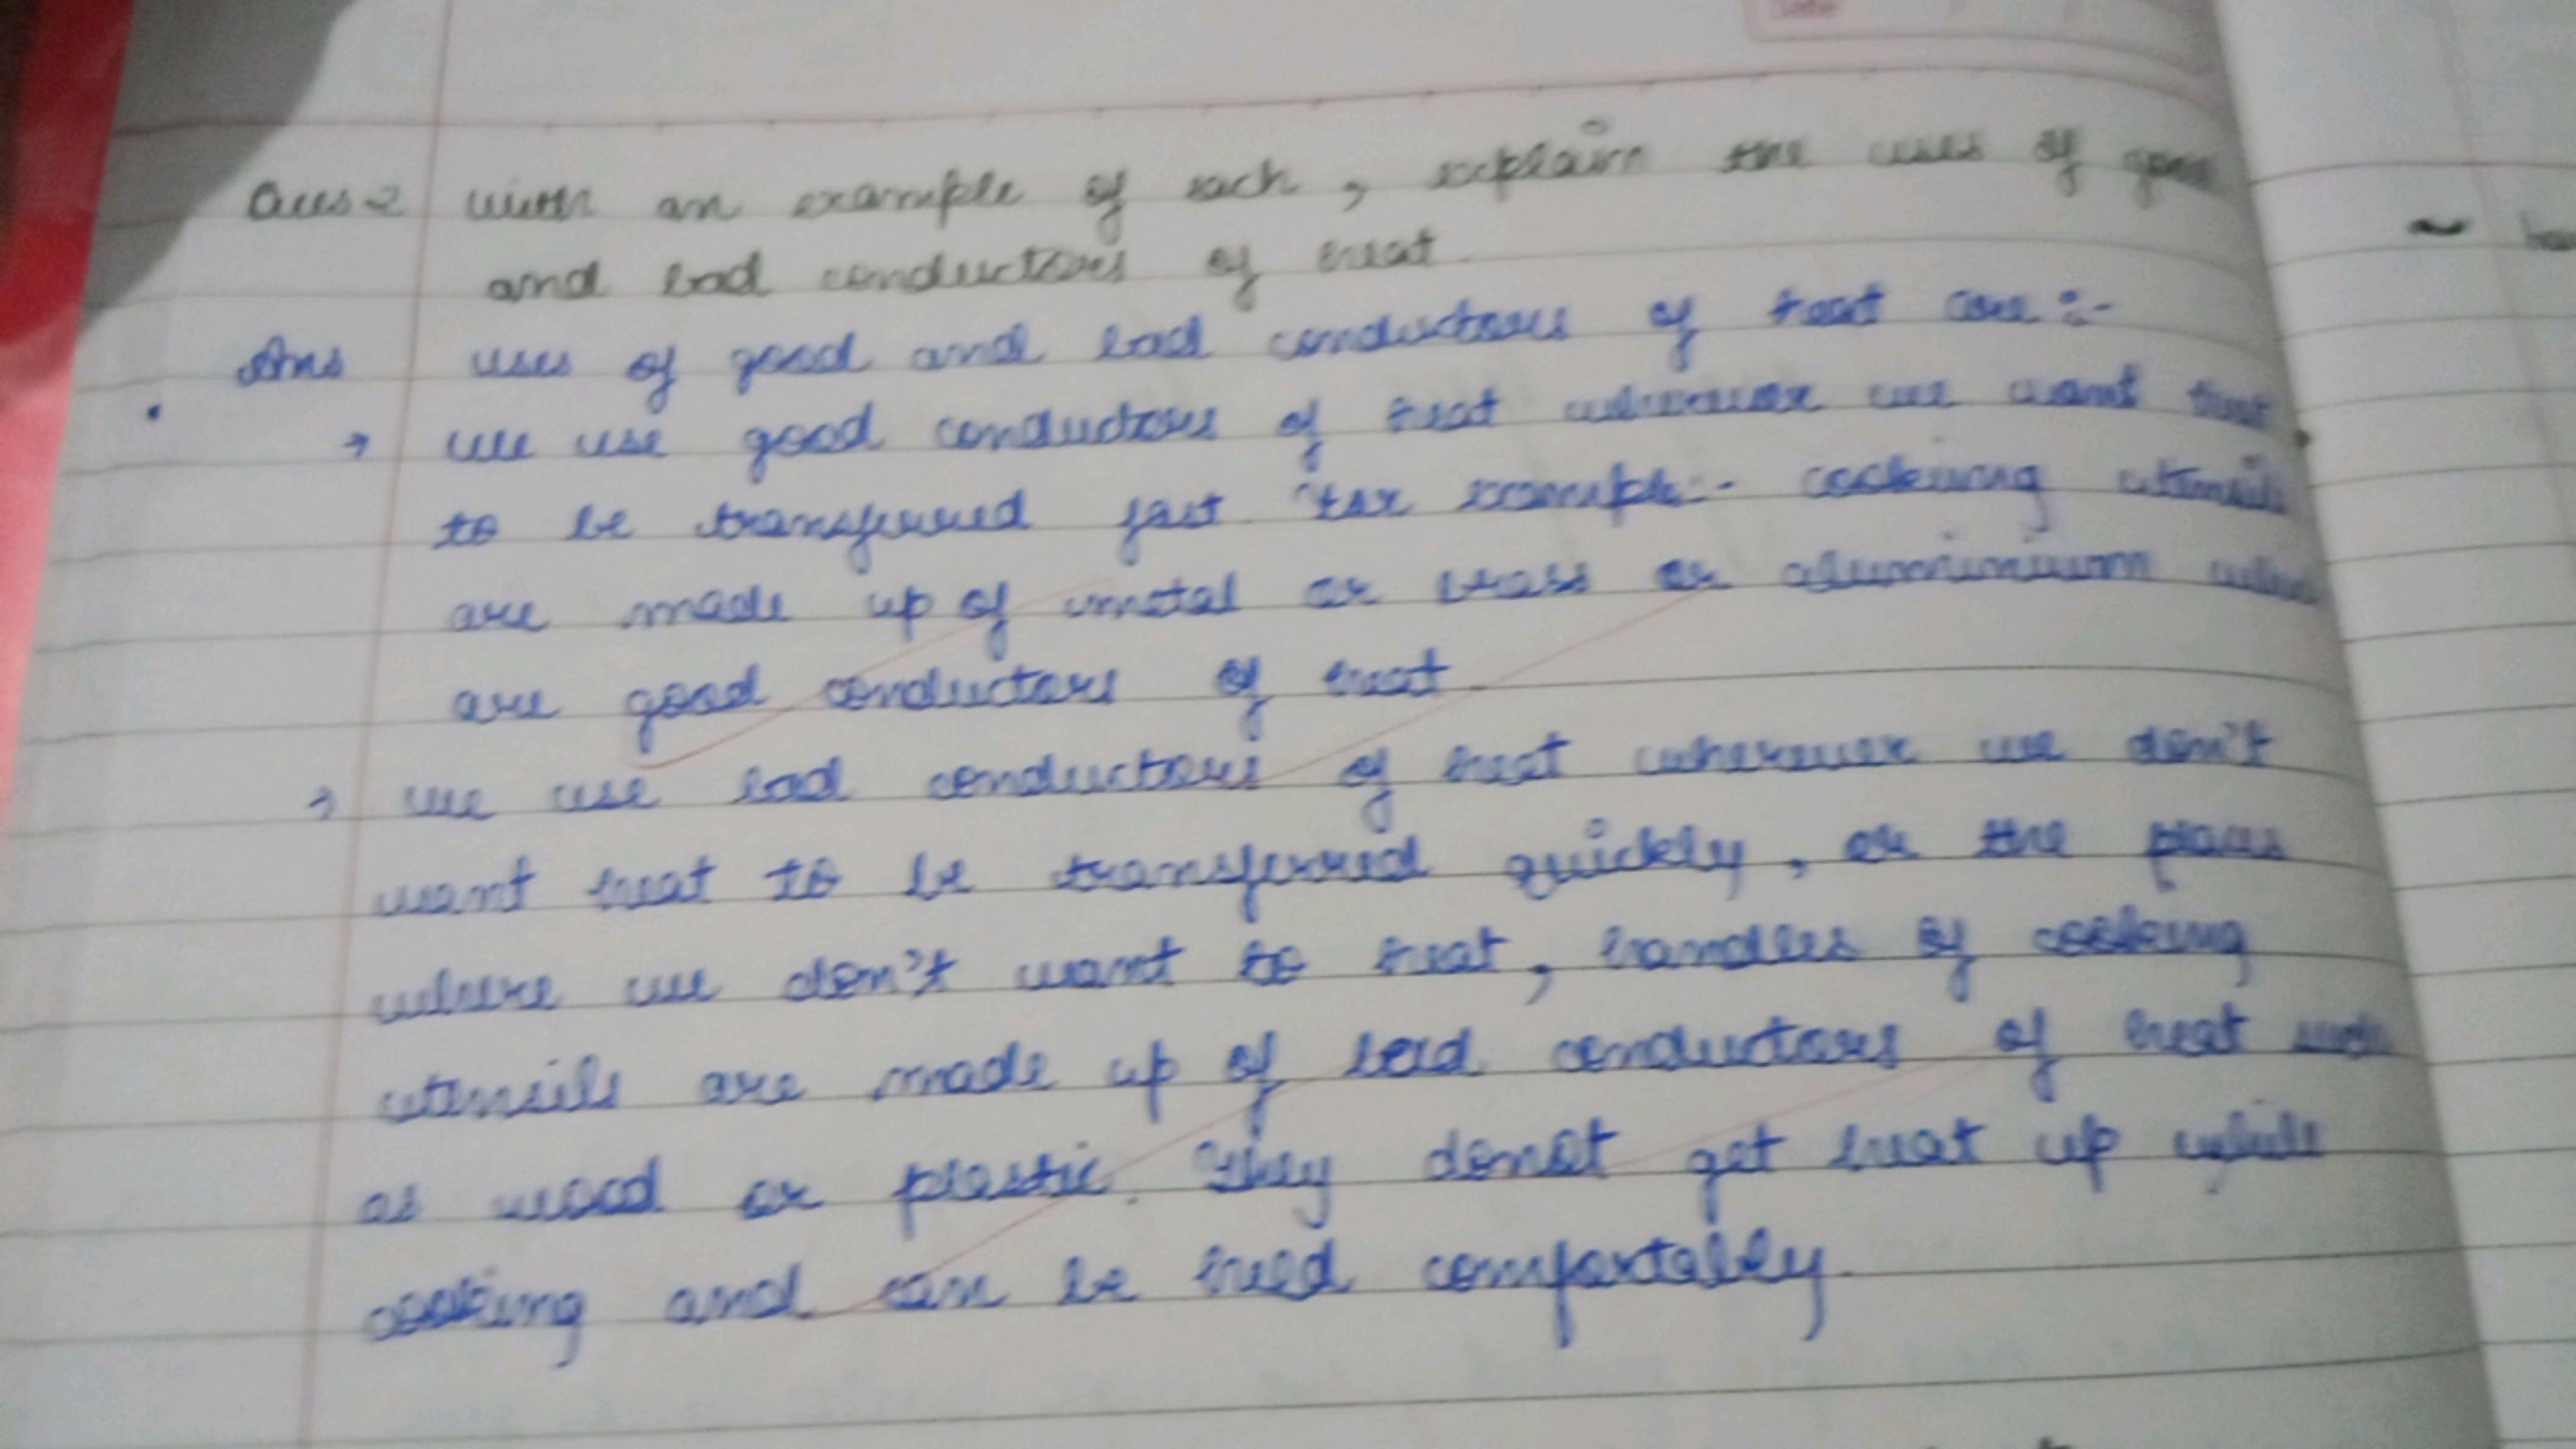 Date
Ques 2 with an example of each, explain the uses of good
and bad conductors of heat.
Ans uses of good and bad conductors of heat are :-
→ we use good conductors of heat wherever we want heat
to be transferred fast. For example:- cooking utensils
are made up of metal or brass or aluminium which
are good conductors of heat.
→ we use bad conductors of heat wherever we don't
want heat to be transferred quickly, or the places
where we don't want to heat, handles of cooking
utensils are made up of bad conductors of heat such
as wood or plastic. They donot get heat up while
cooking and can be held comfortably.